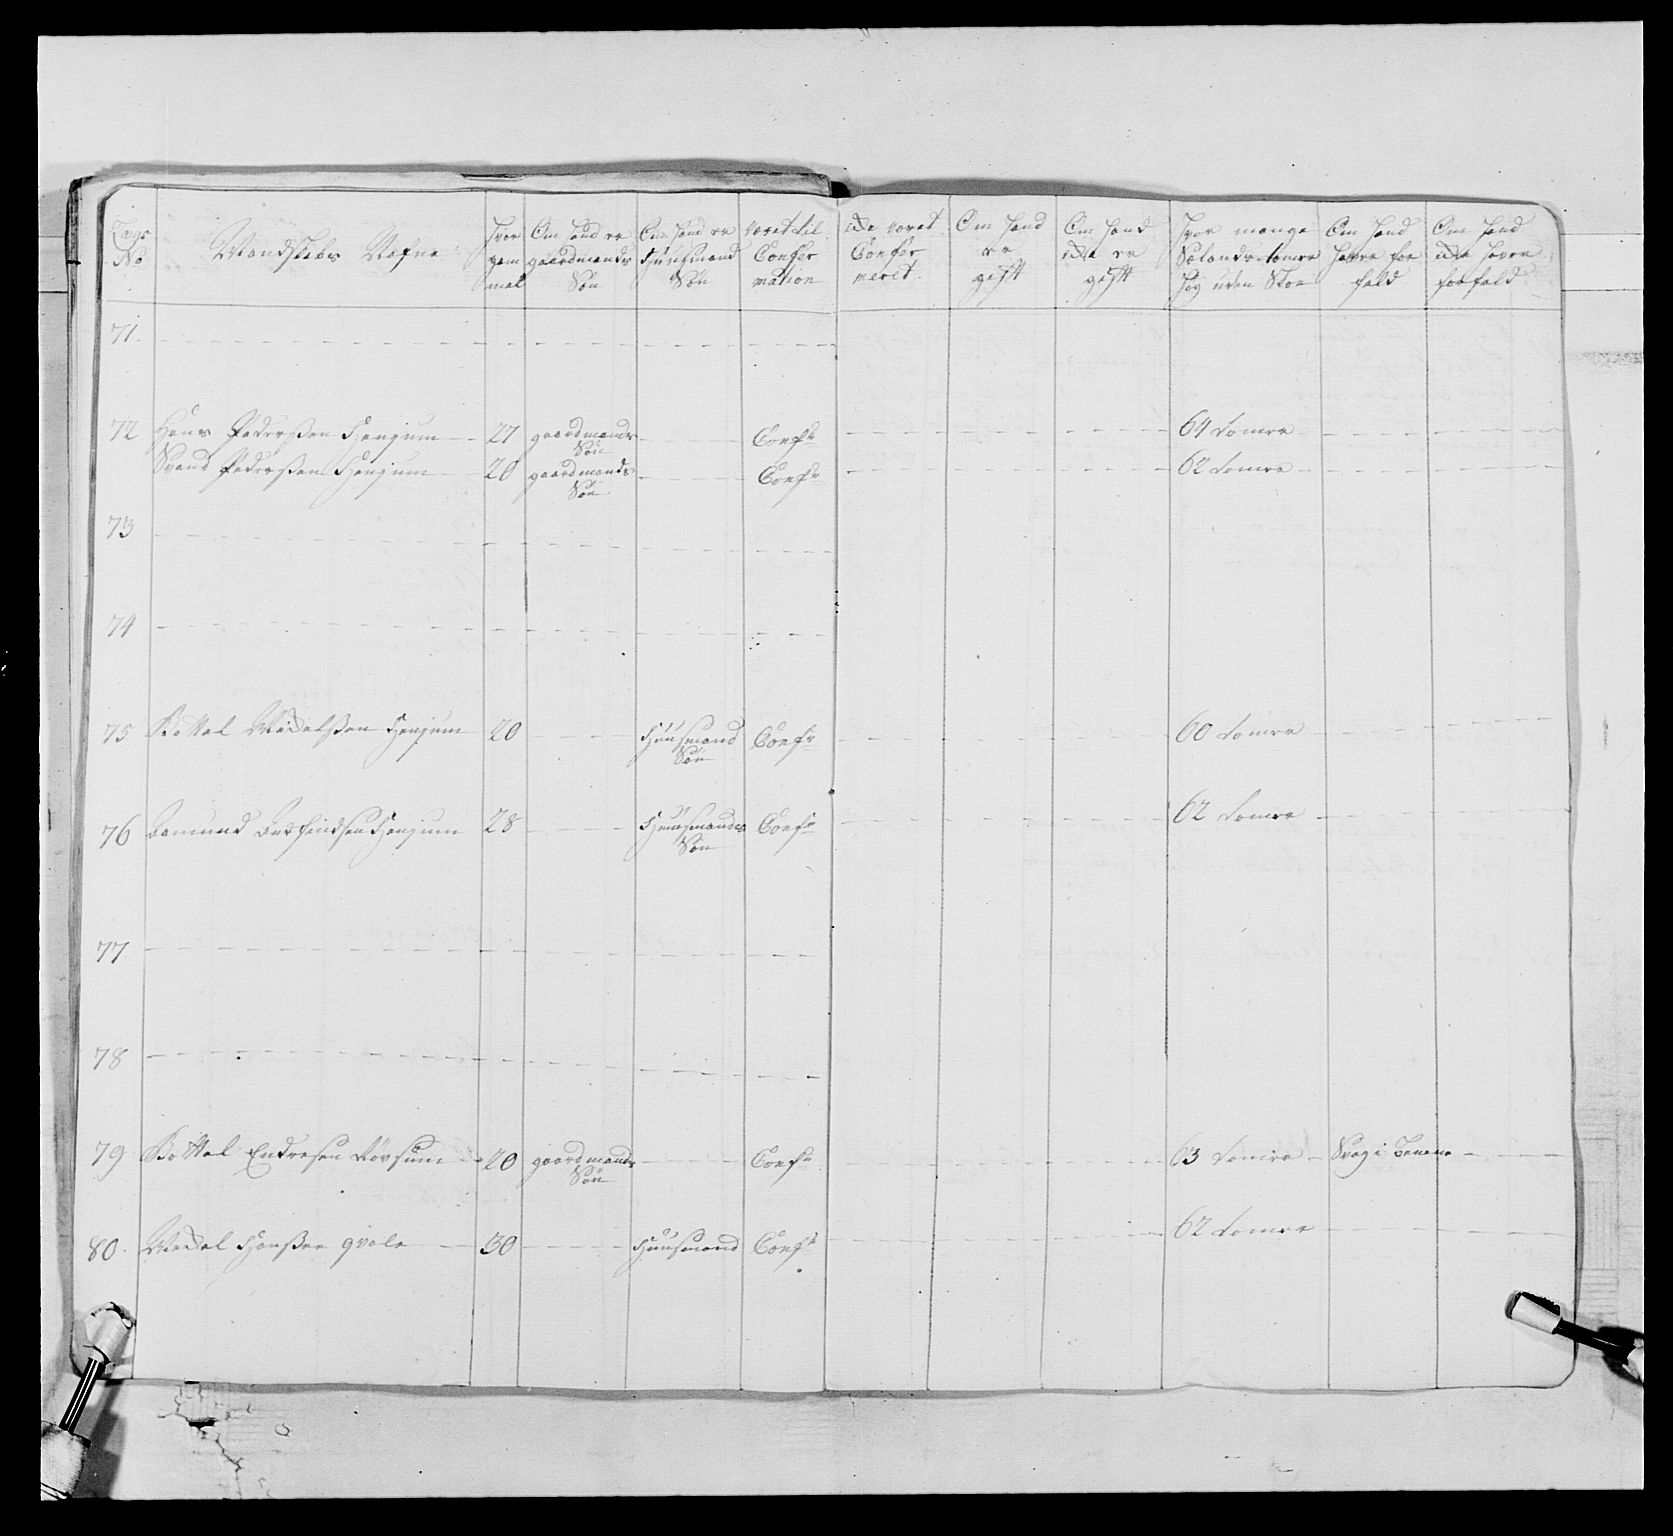 Lægs No | Mandskabs Nafne | Hvor gam mel | Om hand er gaardmands Søn | Om hand er Huusmand Søn | veret til Confir mation | icke veret Confir meret | Om hand er gift | Om hand icke er gift | Hvor mange Sælands tomer høy uden Skoe | Om hand haver for fald | Om hand icke haver forfald
71
72 Hans Pederßen Henjum 27 gaardmands Søn Conf: 64 tomer
Svend Pederßen Henjum 20 gaardmands Søn Conf: 62 tomer
73
74
75 Bottol Michelßen Henjum 20 Huusmand Søn Conf: 60 tomer
76 Aamund Henjum 28 Huusmands Søn Conf: 62 tomer
77
78
79 Bottol Endresen Røvsum 20 gaardmands Søn Conf: 63 tomer Svag i Benene
80 Michel Hanßen qvale 30 Huusmand Conf: 62 tomer